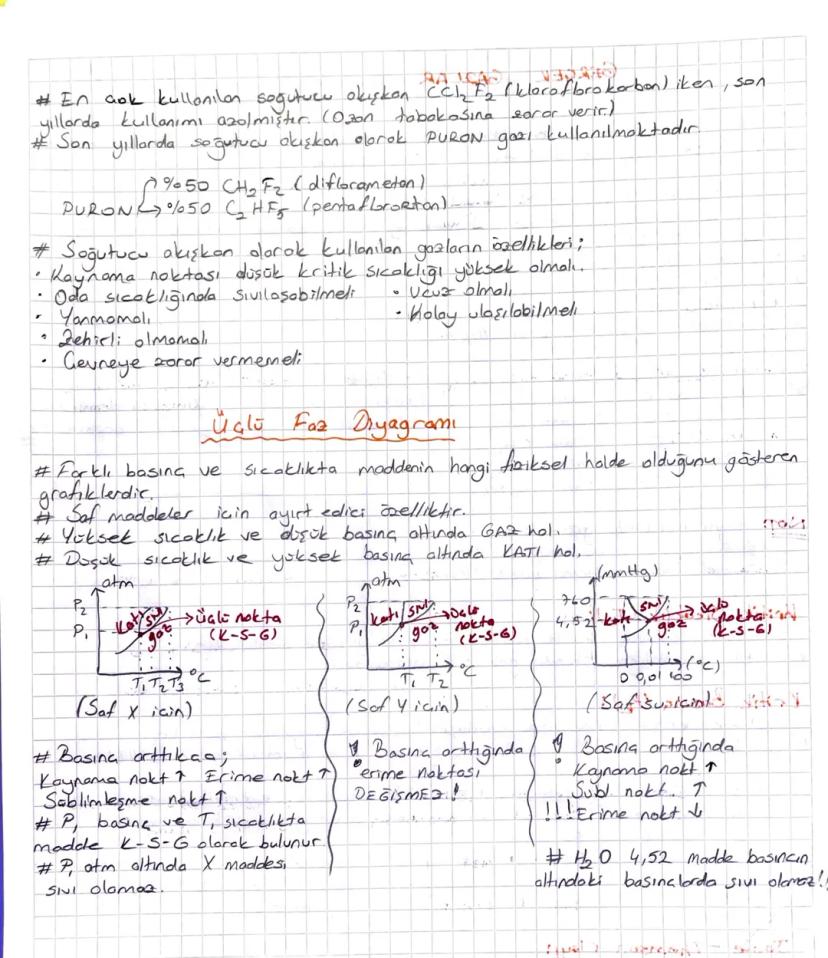 # En çok kullanılan soğutucu akışkan CCl₂F₂ (kloroflorokarbon) iken, son
yıllarda kullanımı azalmıştır. (Ozon tabakasına zarar verir.)
# Son yıllarda soğutucu akışkan olarak PURON gazı kullanılmaktadır.
%50 CH₂F₂ (diflorametan)
PURON %50 C₂HF₅ (pentafloroetan)
# Soğutucu akışkan olarak kullanılan gazların özellikleri;
• Kaynama noktası düşük kritik sıcaklığı yüksek olmalı.
• Oda sıcaklığında sıvılaşabilmeli • Ucuz olmalı
• Yanmamalı • Kolay ulaşılabilmeli
• Zehirli olmamalı
• Çevreye zarar vermemeli
Üçlü Faz Diyagramı
# Farklı basınç ve sıcaklıkta maddenin hangi fiziksel halde olduğunu gösteren
grafiklerdir.
# Saf maddeler için ayırt edici özelliktir.
# Yüksek sıcaklık ve düşük basınç altında GAZ hal.
# Düşük sıcaklık ve yüksek basınç altında KATI hal.
atm
P₂
P₁
Katı sıvı gaz
→ Üçlü nokta
(K-S-G)
T₁ T₂ T₃ °C
(Saf X için)
# Basınç arttıkça;
Kaynama nokt ↑ Erime nokt ↑
Süblimleşme nokt ↑
# P₁ basınç ve T₁ sıcaklıkta
madde K-S-G olarak bulunur
# P₁ atm altında X maddesi
sıvı olamaz.
atm
P₂
P₁
katı sıvı gaz
→ Üçlü
nokta
(K-S-G)
T₁ T₂ °C
(Saf Y için)
! Basınç arttığında
erime noktası
DEĞİŞMEZ!
(mmHg)
760
4,52
katı sıvı gaz
→ üçlü
nokta
(K-S-G)
0 0,01 100 (°C)
(Saf su için)
! Basınç arttığında
Kaynama nokt ↑
Subl nokt. ↑
!!! Erime nokt ↓
# H₂O 4,52 madde basıncın
altındaki basınçlarda sıvı olamaz!!